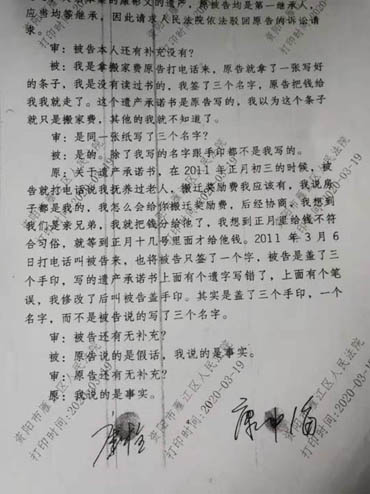 应当均等继承，因此请求人民法院依法驳回原告的诉讼请
求。
审：被告本人还有补充没有？
被：我是拿搬家费原告打电话来，原告就拿了一张写好
的条子，我是没有读过书的，我签了三个名字，原告把钱给
我我就走了。这个遗产承诺书是原告写的，我以为这个条子
就只是搬家费，其他的我就不知道了。
审：是同一张纸写了三个名字？
被：是的。除了我写的名字跟手印都不是我写的。
原：关于遗产承诺书，在 2011 年正月初三的时候，被
告就打电话说我抚养过老人，搬迁奖励费我应该有，我说房
子都是我的，我怎么会给你搬迁奖励费，后经协商，我想到
我们是亲兄弟，我就把钱分给他了，我想到正月里给钱不符
合习俗，就等到正月十几号里面才给他钱。2011 年 3 月 6
日打电话叫被告来，也将被告只签了一个字，被告是盖了三
个手印，写的遗产承诺书上面有个遗字写错了，上面有个笔
误，我修改了后叫被告盖手印。其实是盖了三个手印，一个
名字，而不是被告说的写了三个名字。
审：被告还有无补充？
被：原告说的是假话，我说的是事实。
审：原告还有无补充？
原：我说的是事实。
资阳市雁江区人民法院
打印时间:2020-03-19